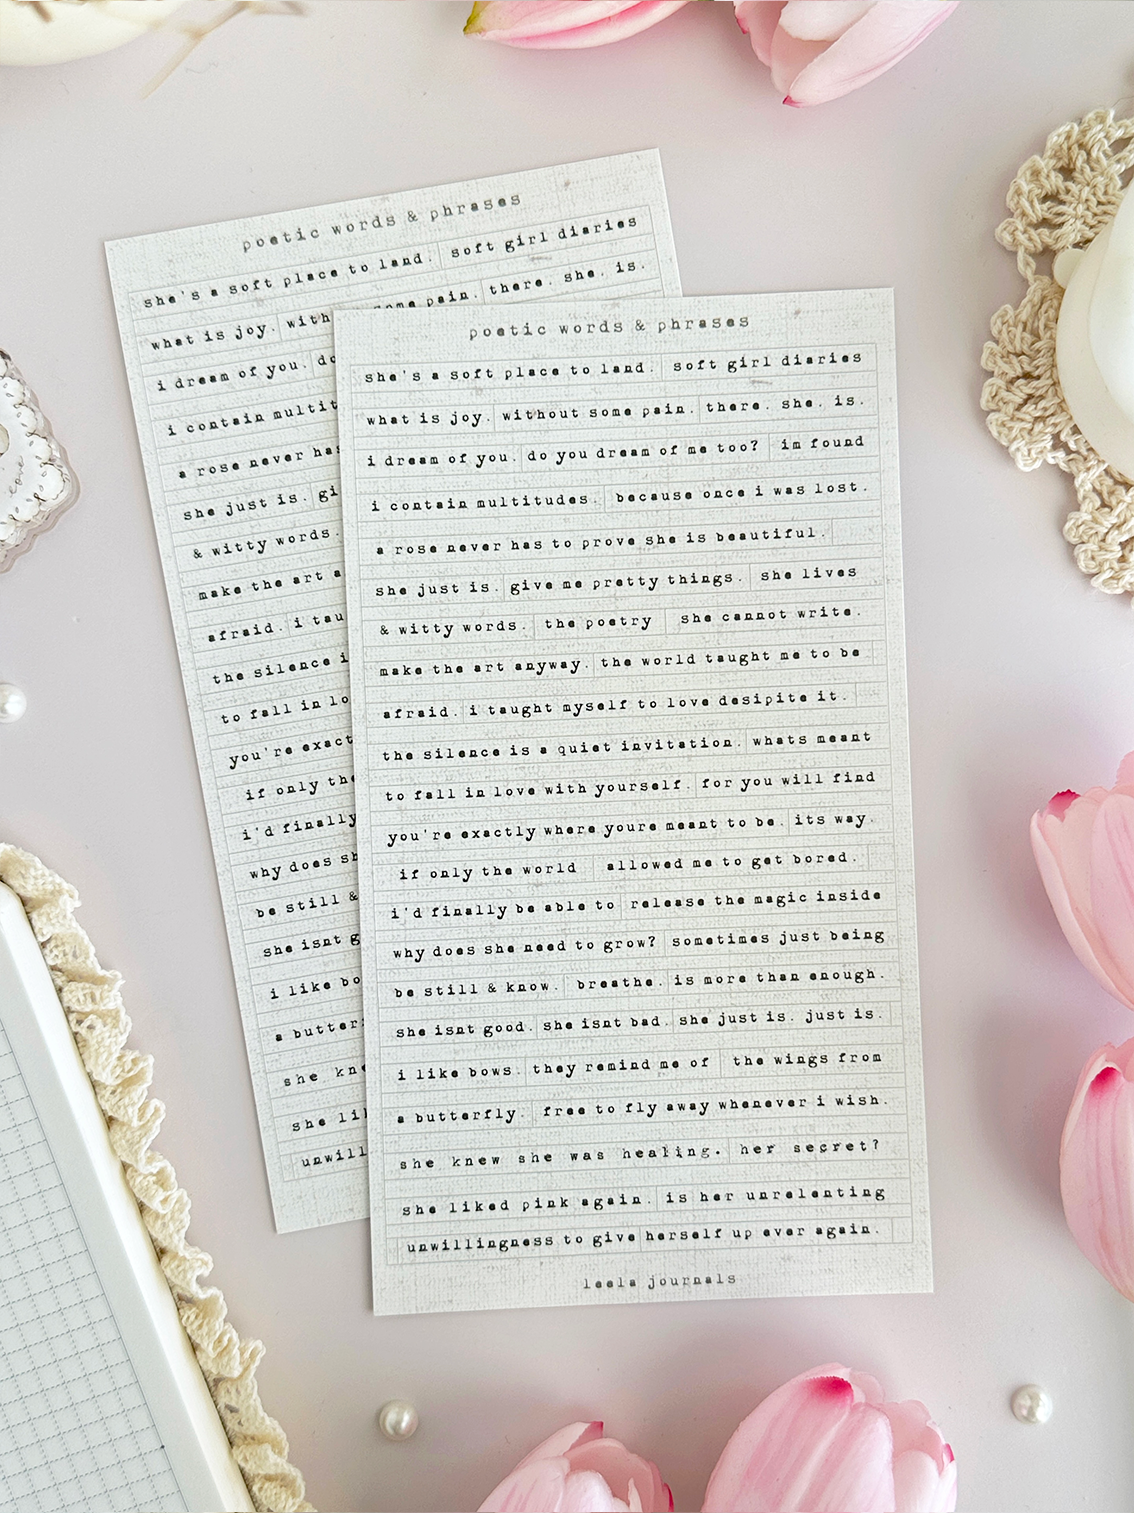 poetic words & phrases
she's a soft place to land. soft girl diaries
what is joy. with some pain. there. she. is.
i dream of you. do
i contain multit
a rose never has
she just is. gi
& witty words.
make the art a
afraid. i tau
the silence i
to fall in lo
you're exact
if only the
i'd finally
why does sh
be still &
she isnt g
i like bo
a butterf
she kne
she lik
unwill
poetic words & phrases
she's a soft place to land. soft girl diaries
what is joy. without some pain. there. she. is.
i dream of you. do you dream of me too? im found
i contain multitudes. because once i was lost.
a rose never has to prove she is beautiful.
she just is. give me pretty things. she lives
& witty words. the poetry she cannot write.
make the art anyway. the world taught me to be
afraid. i taught myself to love desipite it.
the silence is a quiet invitation. whats meant
to fall in love with yourself. for you will find
you're exactly where youre meant to be. its way.
if only the world allowed me to get bored.
i'd finally be able to release the magic inside
why does she need to grow? sometimes just being
be still & know. breathe. is more than enough.
she isnt good. she isnt bad. she just is. just is.
i like bows. they remind me of the wings from
a butterfly. free to fly away whenever i wish.
she knew she was healing. her secret?
she liked pink again. is her unrelenting
unwillingness to give herself up ever again.
leela journals